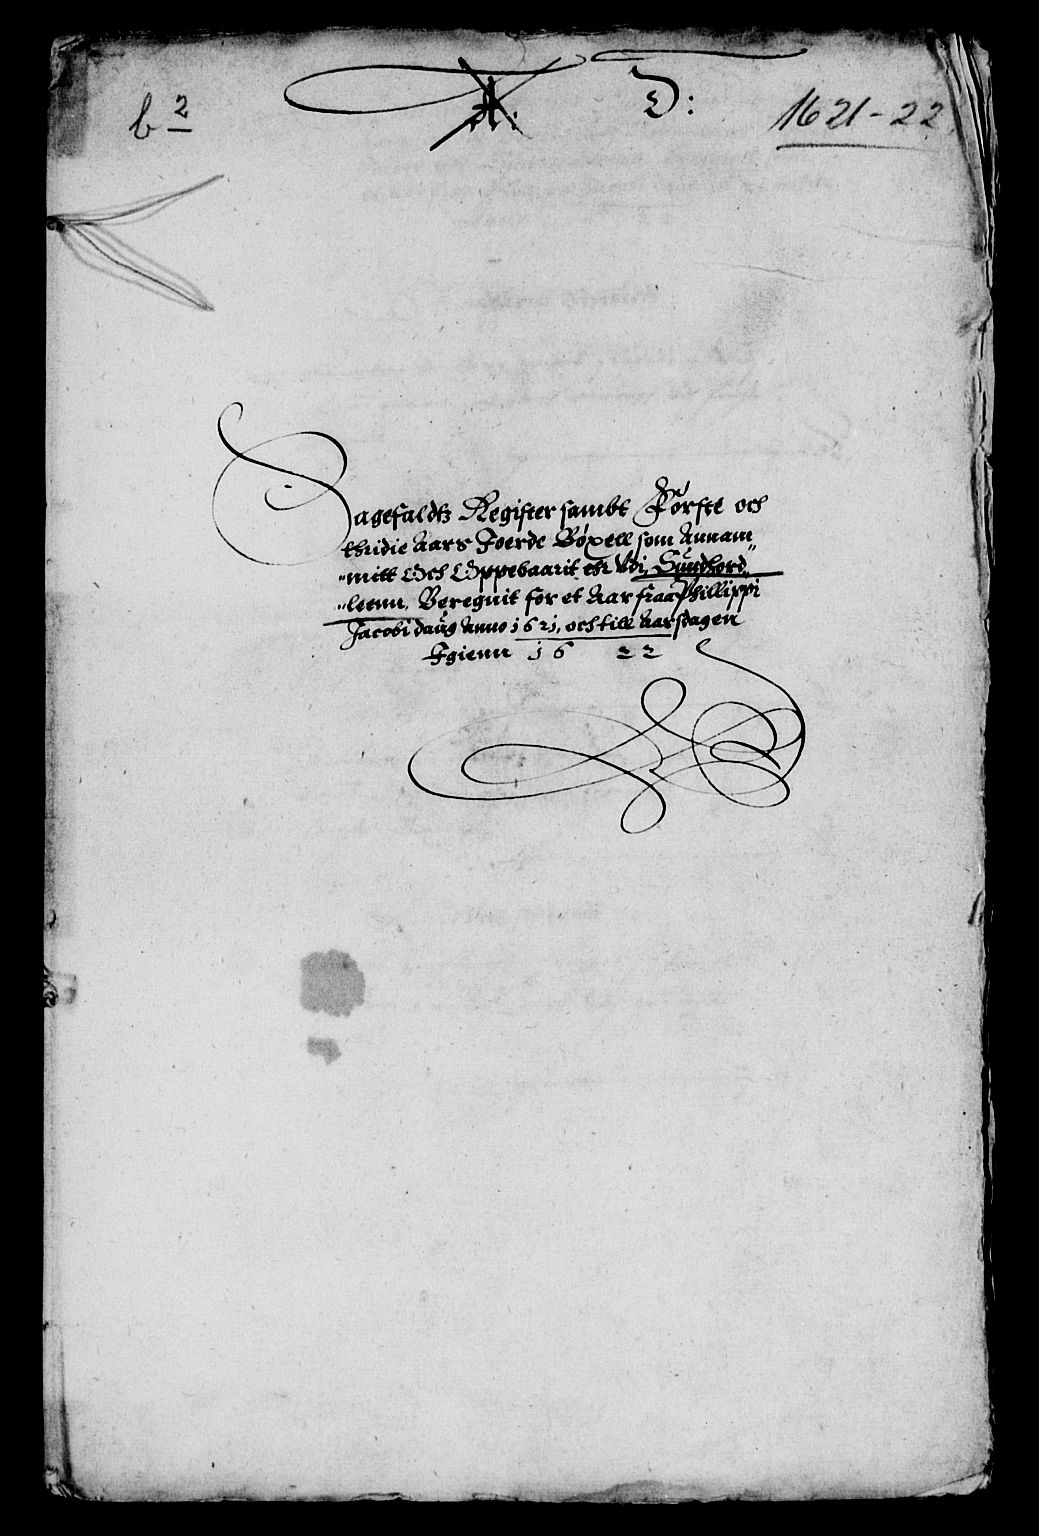 b 2
A: D:
1621-22
Sagefaldtz Register sambt Første och
thridie Aars Foerde Bøxell som Annam„
„mitt Och Oppebaarit ehr Vdi Sundhord„
„leenn, Beregnit for et Aar fraa Phillippi
Jacobi daug Anno 1621, och till Aarsdagen
Igienn 1622